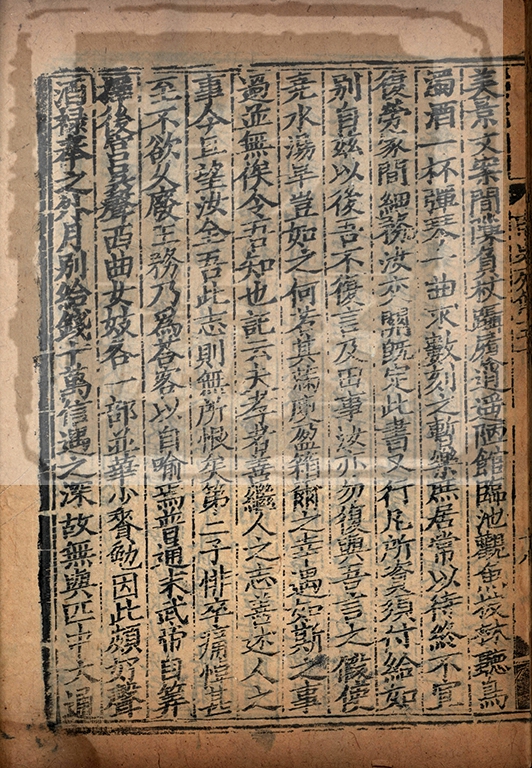 美景文案間隙負杖躡屩逍遥陋館臨池觀魚披林聽鳥
濁酒一杯彈琴一曲求數刻之暫樂庶居常以待終不宜
復勞家間細務汝交關既定此書又行凡所資須付給如
別自兹以後吾不復言及田事汝亦勿復與吾言之假使
堯水湯旱豈如之何若其滿庾盈箱爾之幸遇如斯之事
過並無俟令吾知也記云夫孝者善繼人之志善述人之
事今且望汝全吾此志則無所恨矣第二子悱卒痛悼甚
至不欲久廢王務乃爲荅客以自喻焉普通末武帝自筭
擇後宮吳聲西曲女妓各一部並華少賚勉因此頗好聲
酒祿奉之外月別給錢十萬信遇之深故無與匹中大通